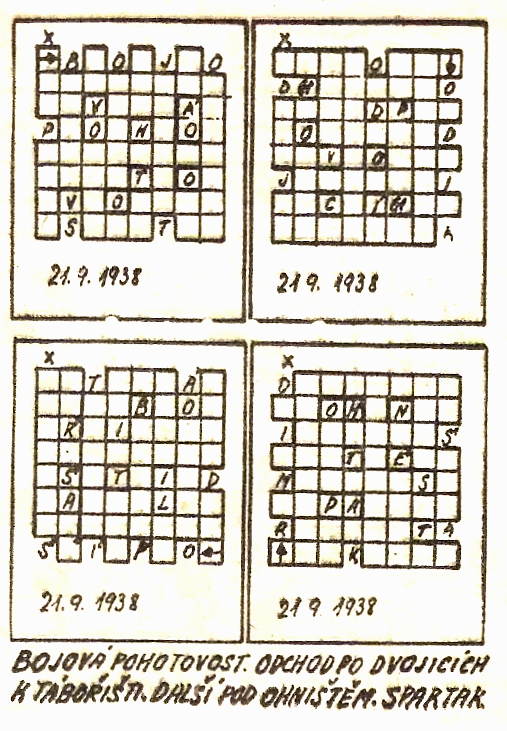 X
B O J O
V Á
P O H O
T O
V O
S T
21.9.1938
X
O
D H O
D P
O D
V O
J I
C I H
A
21 9. 1938
X
T Á
B O
Ř I
Š T I D
A L
Š Í P O
21.9.1938
X
D
O H N
I Š
T Ě
M S
P A
R T A
K
21 9. 1938
BOJOVÁ POHOTOVOST. ODCHOD PO DVOJICÍCH
K TÁBOŘIŠTI. DALŠÍ POD OHNIŠTĚM. SPARTAK.